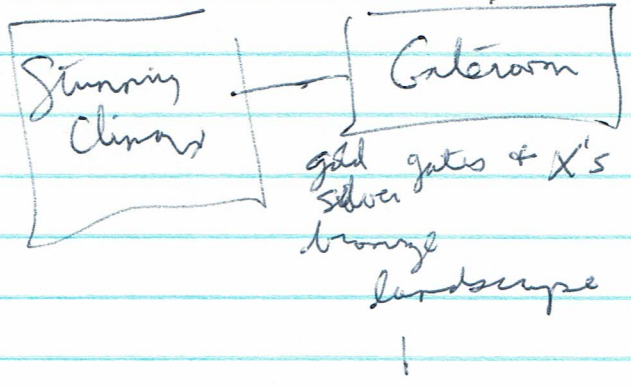 Stunning
Climax
Gateroom
gold gates & X's
silver
bronze
landscape